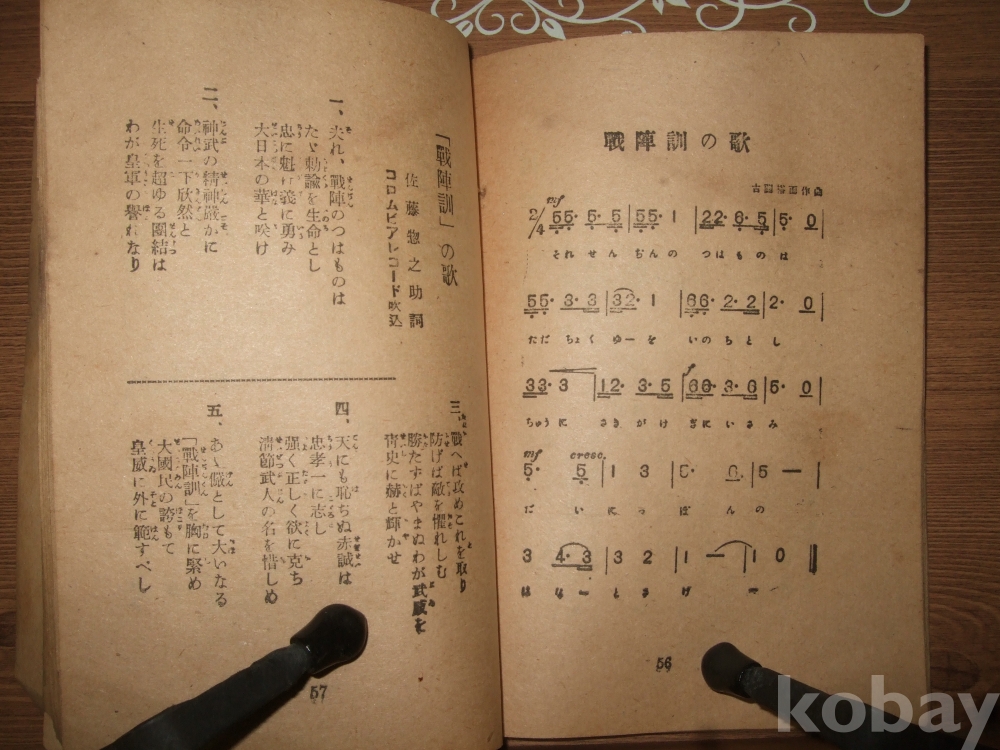 戰陣訓の歌
古關裕而作曲
mf
2/4 55· 5· 5 | 55· 1 | 22· 6· 5 | 5· 0 |
それせんぢんの つはものは
55· 3· 3 | 32· 1 | 66· 2· 2 | 2· 0 |
ただちよくゆーを いのちとし
f
33· 3 | 12· 3· 5 | 66· 3· 6 | 5· 0 |
ちゅうに さきがけ ぎにいさみ
mf cresc.
5· 5 | 1 3 | 5· 6 | 5 — |
だいにっぽんの
3 4· 3 | 3 2 | 1 — | 1 0 |
はなーとさけ
56
「戰陣訓」の歌
佐藤惣之助詞
コロムビアレコード吹込
一、夫れ、戰陣のつはものは
たゞ勅諭を生命とし
忠に魁け義に勇み
大日本の華と咲け
二、神武の精神嚴かに
命令一下欣然と
生死を超ゆる團結は
わが皇軍の譽れなり
三、戰へば攻めこれを取り
防げば敵を懼れしむ
勝たずばやまぬわが武威を
靑史に赫と輝かせ
四、天にも恥ぢぬ赤誠は
忠孝一に志し
强く正しく欲に克ち
淸節武人の名を惜しめ
五、あゝ儼として大いなる
「戰陣訓」を胸に緊め
大國民の誇もて
皇威に外に範すべし
57
kobay